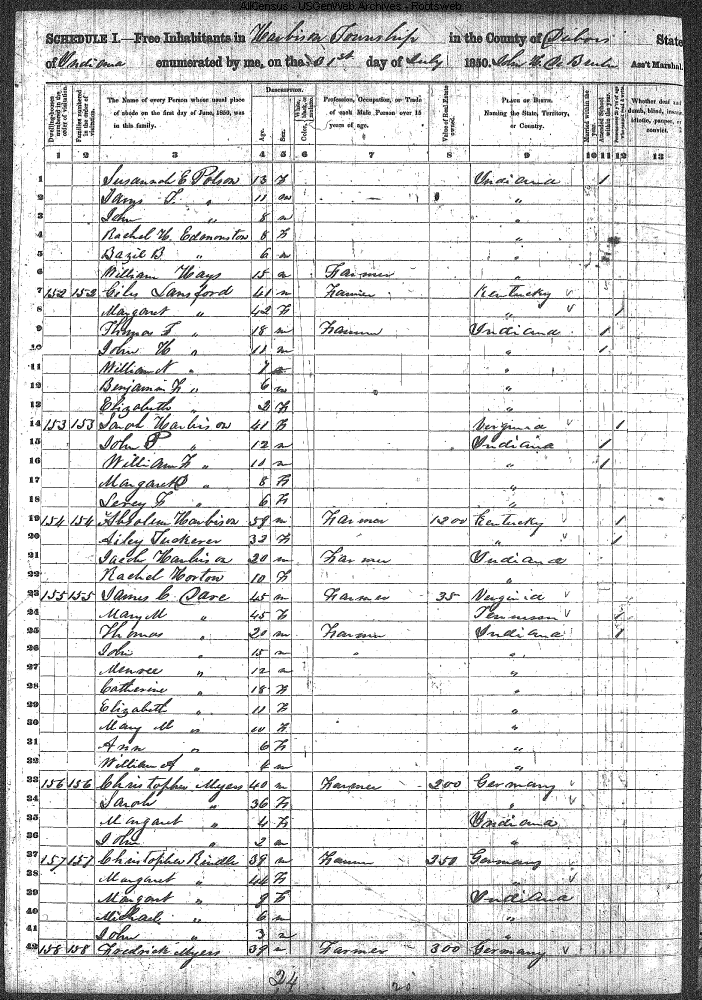 AllCensus - USGenWeb Archives - Rootsweb
SCHEDULE I.—Free Inhabitants in Harbison Township in the County of Dubois State
of Indiana enumerated by me, on the 1st day of July 1850. Ass't Marshal.
Dwelling-houses numbered in the order of visitation.
Families numbered in the order of visitation.
The Name of every Person whose usual place of abode on the first day of June, 1850, was in this family.
DESCRIPTION.
Age.
Sex.
Color, White, black, or mulatto.
Profession, Occupation, or Trade of each Male Person over 15 years of age.
Value of Real Estate owned.
PLACE OF BIRTH. Naming the State, Territory, or Country.
Married within the year.
Attended School within the year.
Whether deaf and dumb, blind, insane, idiotic, pauper, or convict.
1 2 3 4 5 6 7 8 9 10 11 12 13
1 Susannah E Polson 13 F Indiana 1
2 James T. " 11 m "
3 John " 8 m "
4 Rachel H. Edmonston 8 F "
5 Bazil B " 6 m "
6 William Hays 15 m Farmer "
7 152 152 Giles Lansford 41 m Farmer Kentucky
8 Margaret " 42 F " 1
9 Thomas F " 18 m Farmer Indiana 1
10 John H " 11 m " 1
11 William N " 7 m "
12 Benjamin F " 6 m "
13 Elizabeth " 2 F "
14 153 153 Sarah Harbison 41 F Verginia 1
15 John P " 12 m Indiana 1
16 William F " 10 m " 1
17 Margaret " 8 F "
18 " 6 F "
19 154 154 Absolem Harbison 59 m Farmer 1200 Kentucky 1
20 Ailey Tuckerer 32 F " 1
21 Jacob Harbison 20 m Farmer Indiana
22 Rachel Horton 10 F "
23 155 155 James C. 45 m Farmer 35 Verginia
24 Mary M " 45 F Tennessee 1
25 Thomas " 20 m Farmer Indiana 1
26 John " 15 m " "
27 " 12 m "
28 Catherine " 18 F "
29 Elizabeth " 11 F "
30 Mary M " 10 F "
31 Ann " 6 F "
32 William A " 4 m "
33 156 156 Christopher Myers 40 m Farmer 200 Germany
34 Sarah " 36 F "
35 Margaret " 4 F Indiana
36 John " 2 m "
37 157 157 Christopher Rindle 39 m Farmer 250 Germany
38 Margaret " 44 F "
39 Margaret " 9 F Indiana
40 Michael " 6 m "
41 John " 3 m "
42 158 158 Fredrick Myers 39 m Farmer 300 Germany
24